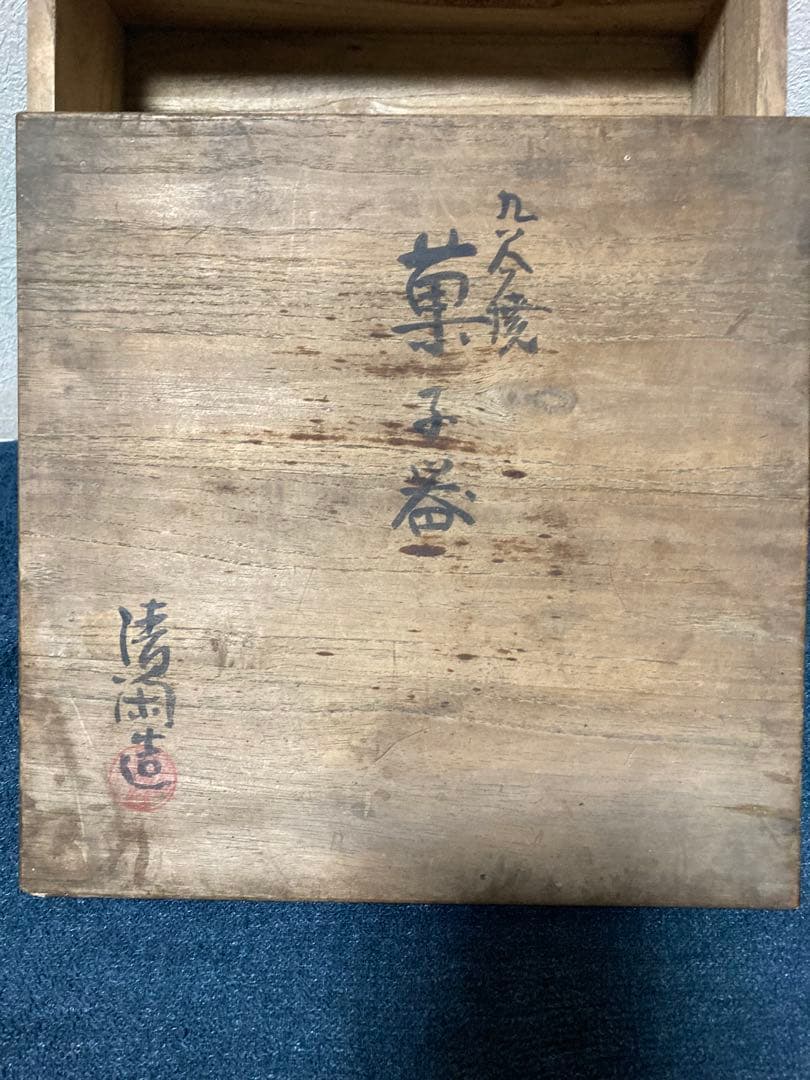 九谷焼
菓子器
清閑造